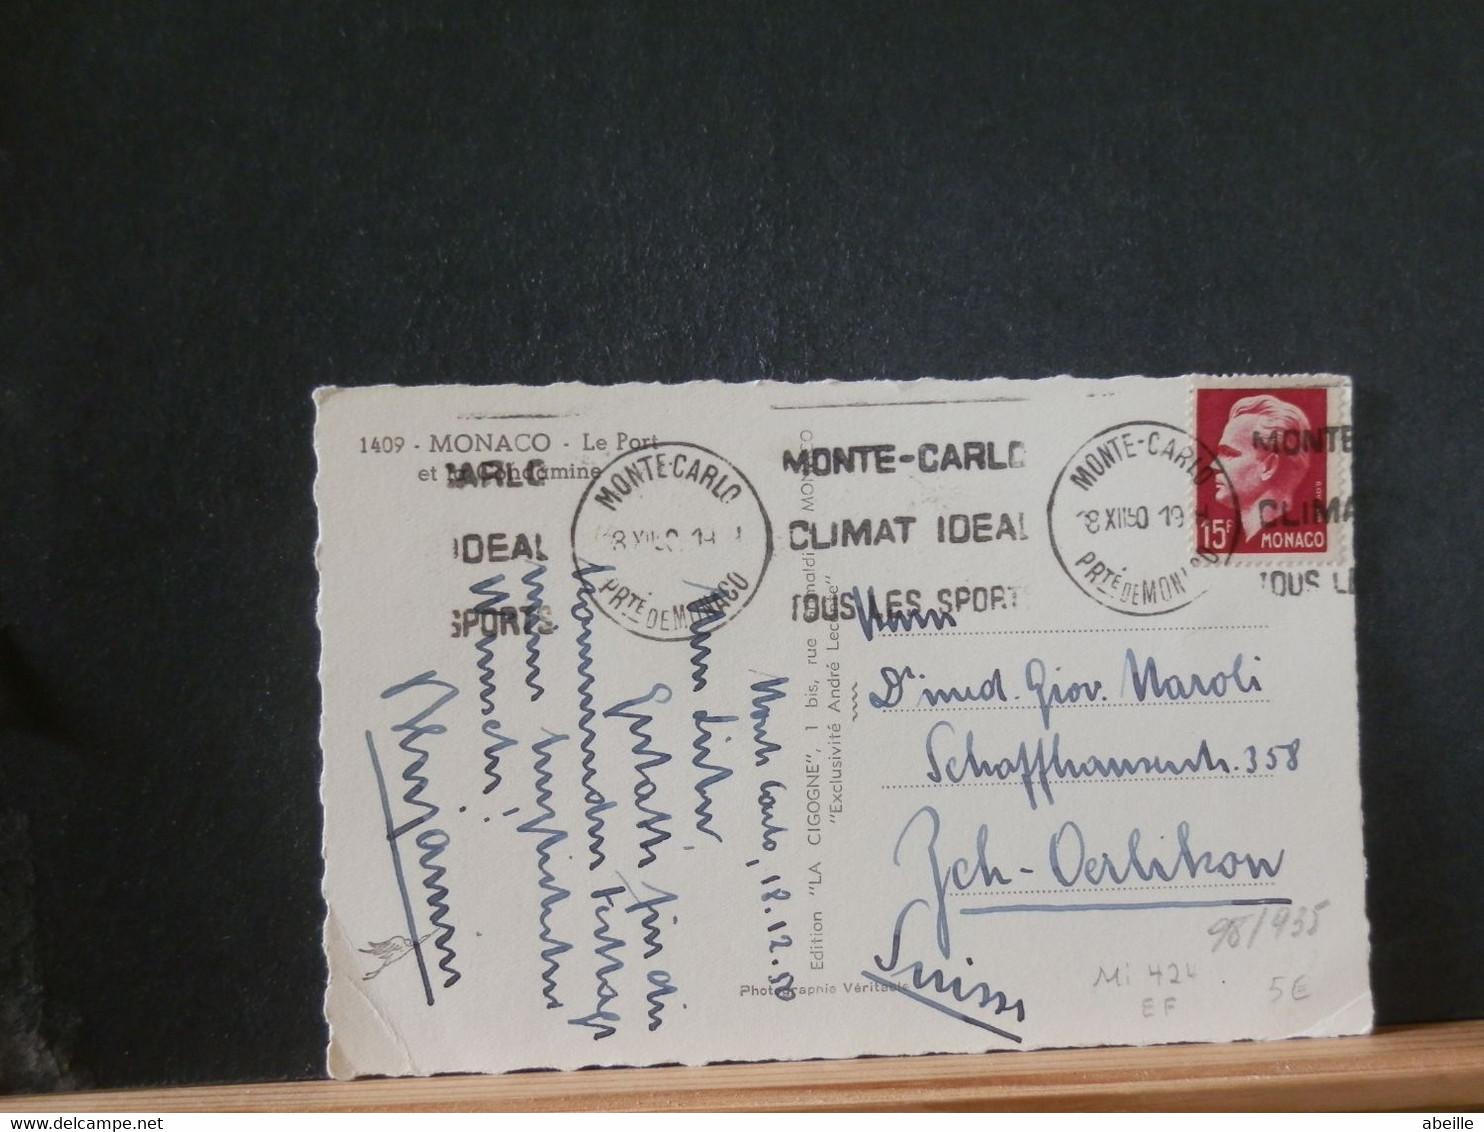 1409 - MONACO - Le Port
et la Condamine
CARLO
IDEAL
SPORTS
MONTE-CARLO
PRTÉ DE MONACO
MONTE-CARLO
CLIMAT IDEAL
TOUS LES SPORTS
MONTE-CARLO
18 XII 50 19 H
PRTÉ DE MONACO
MONTE
CLIMA
TOUS LE
15F
MONACO
Monte Carlo, 18.12.50
Mein lieber,
Gestatte für die
kommenden Festtage
meine herzlichsten
Wünsche!
Edition "LA CIGOGNE", 1 bis, rue Grimaldi MONACO
"Exclusivité André Leconte"
Photographie Véritable
Herrn
Dr med. Giov. Maroli
Schaffhauserstr. 358
Zch-Oerlikon
Suisse
98/935
Mi 424
EF
5€
abeille